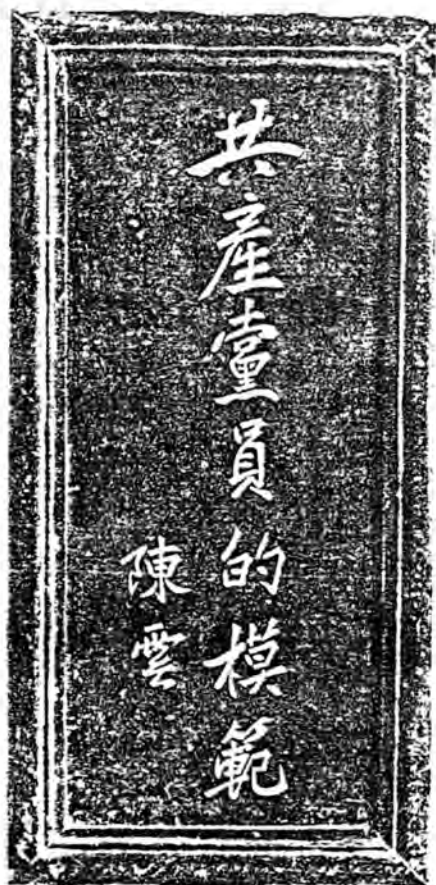 共產黨員的模範
陳雲